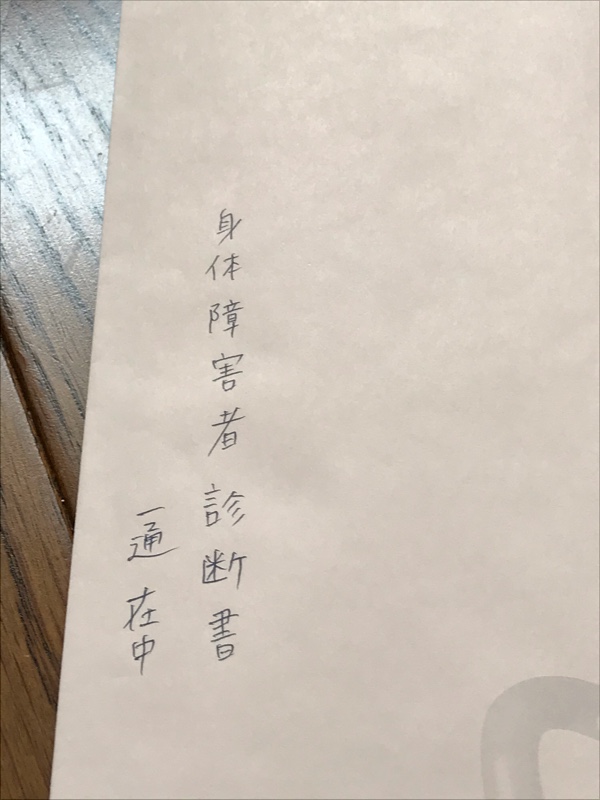 身体障害者診断書
一通在中